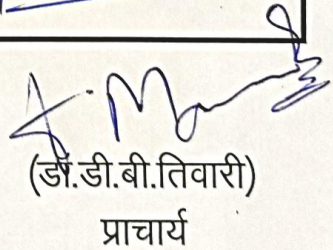 (डॉ.डी.बी.तिवारी)
प्राचार्य